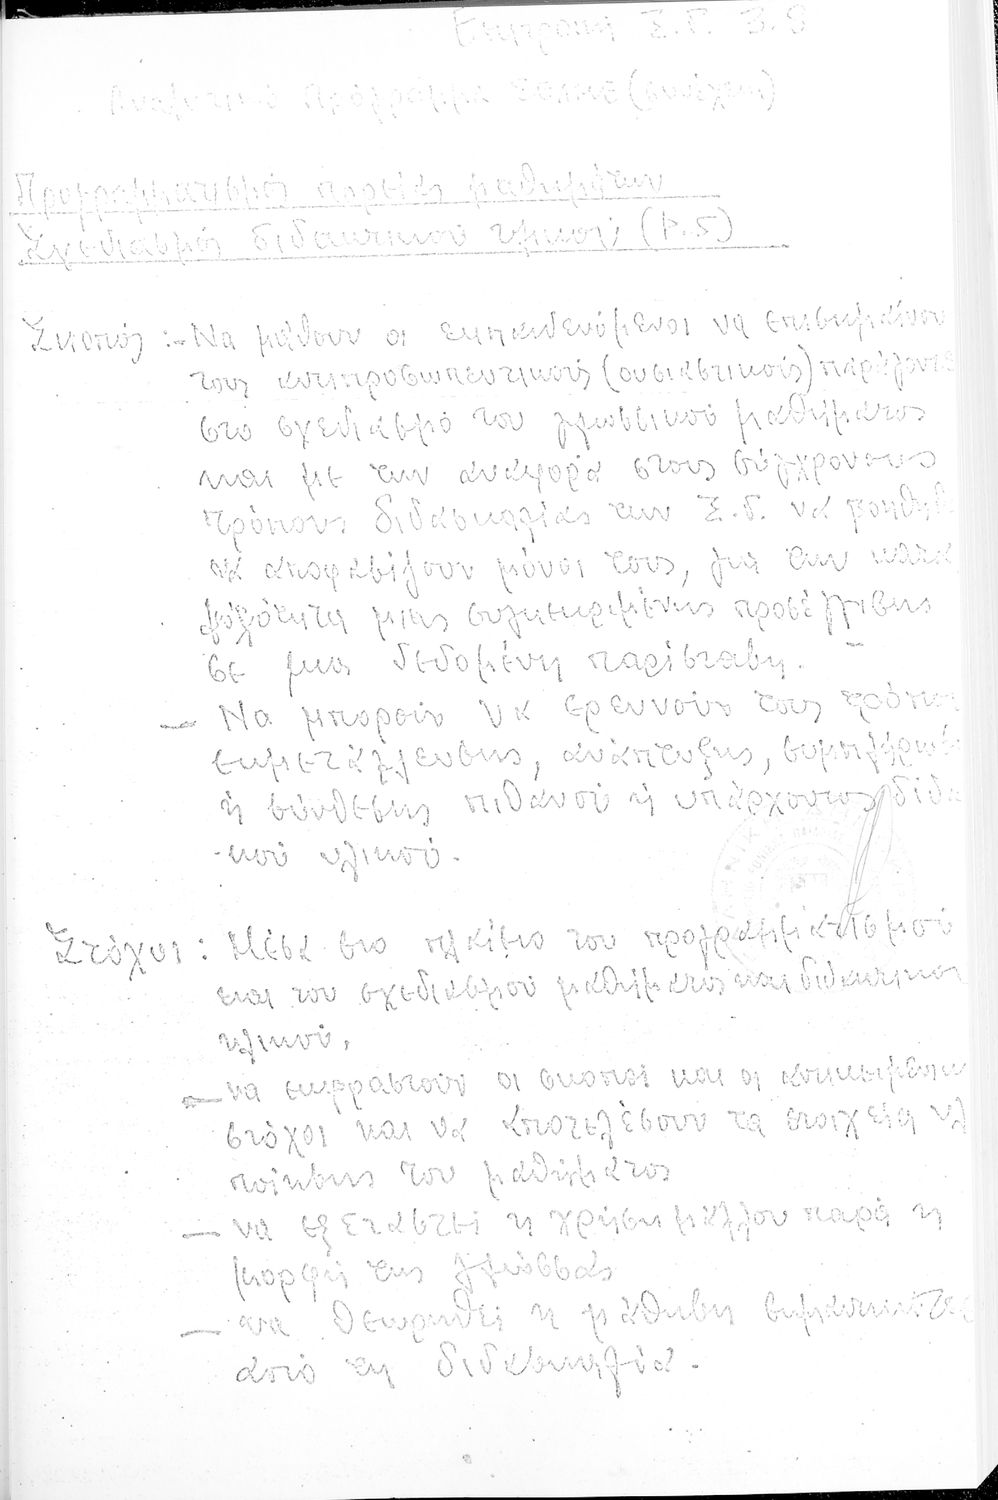 Επιτροπή Ξ.Γ. 3.9
Αναλυτικό Πρόγραμμα ΣΕΛΜΕ (συνέχεια)
Προγραμματισμός πορείας μαθημάτων
Σχεδιασμός διδακτικού υλικού; (Ρ.5)
Σκοπός :- Να μάθουν οι εκπαιδευόμενοι να επισημαίνου
τους αντιπροσωπευτικούς (ουσιαστικούς) παράγοντε
στο σχεδιασμό του γλωσσικού μαθήματος
και με την αναφορά στους σύγχρονους
τρόπους διδασκαλίας των Ξ.Γ. να βοηθηθ
να αποφασίζουν μόνοι τους, για την κατα
μιας συγκεκριμένης προσέγγισης
σε μια δεδομένη παρίσταση.
— Να μπορούν να ερευνούν τους τρόπου
εκμετάλλευσης, ανάπτυξης, συμπλήρωσ
ή σύνθεσης πιθανού ή υπάρχοντος διδα
-κού υλικού.
Στόχοι : Μέσα στο πλαίσιο του προγραμματισμού
και του σχεδιασμού μαθήματος και διδακτικού
υλικού,
— να εκφραστούν οι σκοποί και οι αντικειμενικ
στόχοι και να αποτελέσουν τα στοιχεία υλ
ποίησης του μαθήματος
— να εξεταστεί η χρήση μάλλον παρά η
μορφή της γλώσσας
— να θεωρηθεί η μάθηση σημαντικότε
από τη διδασκαλία.